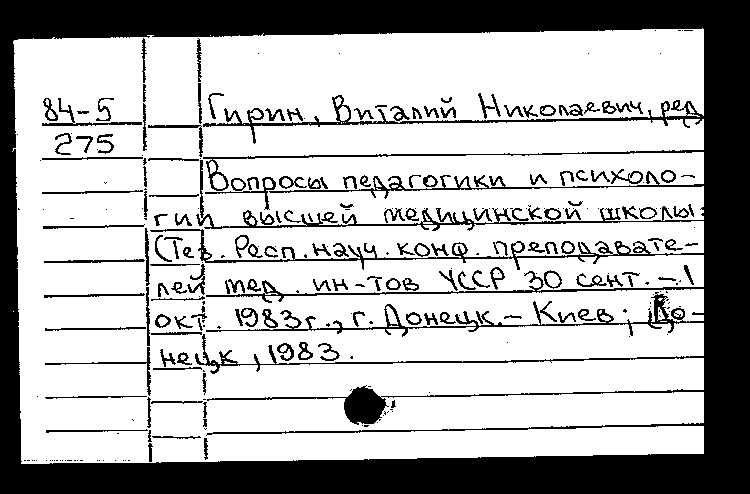 84-5 Гирин, Виталий Николаевич, ред
275
Вопросы педагогики и психоло-
гии высшей медицинской школы:
(Тез. Респ. науч. конф. преподавате-
лей мед. ин-тов УССР 30 сент. - 1
окт. 1983г., г. Донецк. - Киев; До-
нецк, 1983.